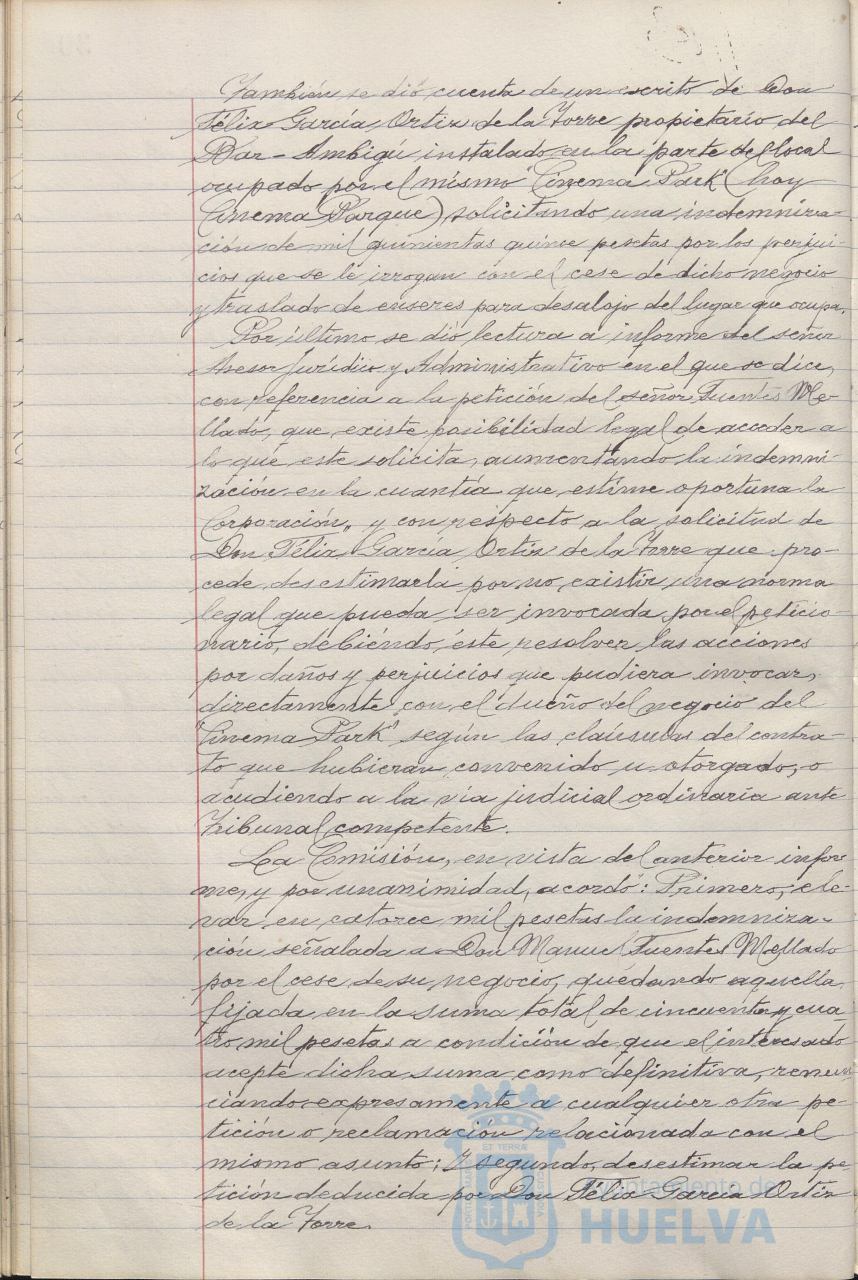 También se dió cuenta de un escrito de Don
Félix García Ortiz de la Torre propietario del
Bar-Ambigú instalado en la parte del local
ocupado por el mismo "Cinema Park" (hoy
Cinema Parque) solicitando una indemniza-
ción de mil quinientas quince pesetas por los perjui-
cios que se le irrogan con el cese de dicho negocio
y traslado de enseres para desalojo del lugar que ocupa.
Por último se dió lectura a informe del señor
Asesor Jurídico y Administrativo en el que se dice,
con referencia a la petición del señor Fuentes Me-
llado, que existe posibilidad legal de acceder a
lo que este solicita, aumentando la indemni-
zación en la cuantía que estime oportuna la
Corporación, y con respecto a la solicitud de
Don Félix García Ortiz de la Torre que pro-
cede desestimarla por no existir una norma
legal que pueda ser invocada por el peticio-
nario, debiéndo éste resolver las acciones
por daños y perjuicios que pudiera invocar,
directamente con el dueño del negocio del
"Cinema Park" según las claúsulas del contra-
to que hubieran convenido u otorgado, o
acudiendo a la vía judicial ordinaria ante
Tribunal competente.
La Comisión, en vista del anterior infor-
me, y por unanimidad, acordó: Primero, ele-
var en catorce mil pesetas la indemniza-
ción señalada a Don Manuel Fuentes Mellado
por el cese de su negocio, quedando aquella
fijada en la suma total de cincuenta y cua-
tro mil pesetas a condición de que el interesado
acepte dicha suma como definitiva, renun-
ciando expresamente a cualquier otra pe-
tición o reclamación relacionada con el
mismo asunto; Y segundo, desestimar la pe-
tición deducida por Don Félix García Ortiz
de la Torre.
ET TERRA
Ayuntamiento de
HUELVA